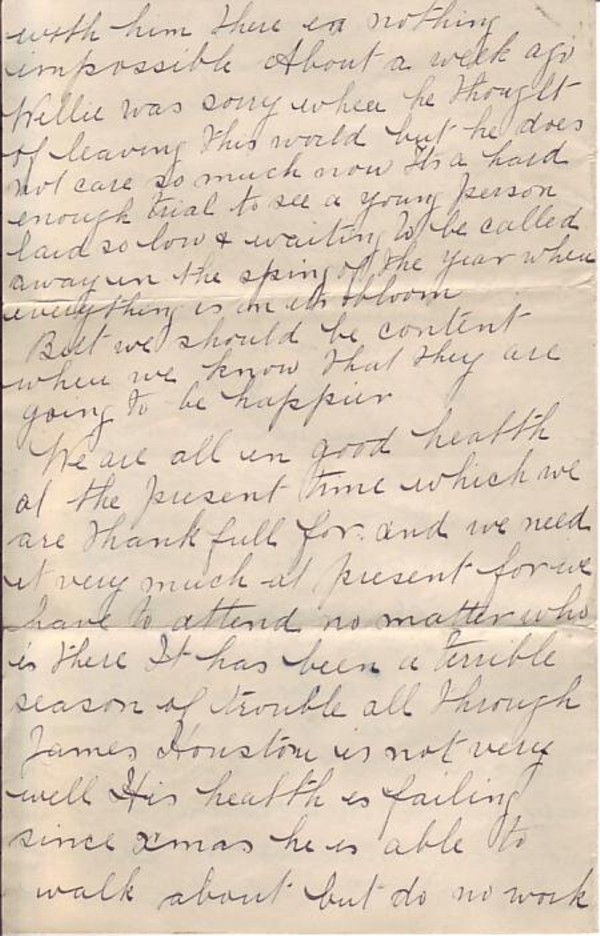 with him there is nothing
impossible About a week ago
Willie was sorry when he thought
of leaving this world but he does
not care so much now Its a hard
enough trial to see a young person
laid so low & waiting to be called
away in the spring of the year when
everything is in its bloom
But we should be content
when we know that they are
going to be happier
We are all in good health
at the present time which we
are thankfull for. and we need
it very much at present for we
have to attend no matter who
is there It has been a terrible
season of trouble all through
James Houston is not very
well His health is failing
since xmas he is able to
walk about but do no work